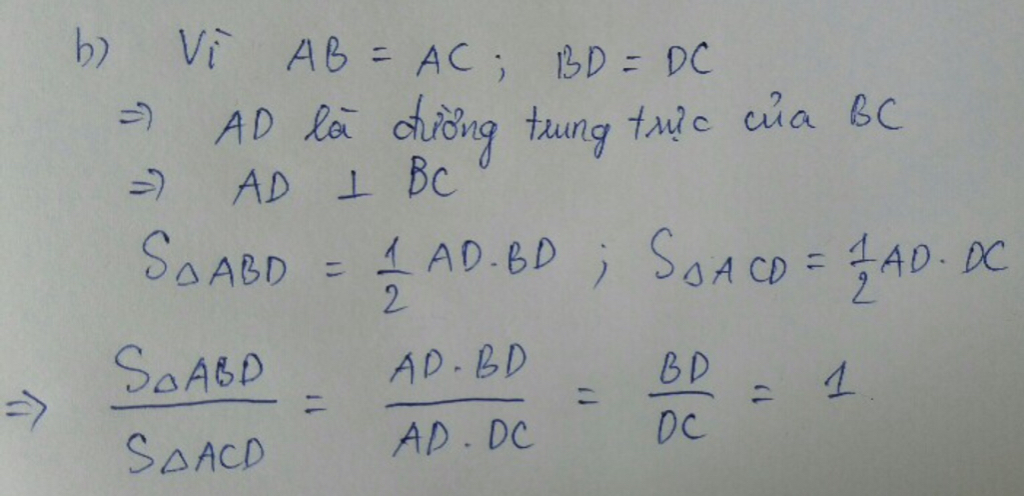 b) Vì AB = AC ; BD = DC
=> AD là đường trung trực của BC
=> AD ⊥ BC
S△ABD = 1/2 AD.BD ; S△ACD = 1/2 AD.DC
=> S△ABD/S△ACD = AD.BD/AD.DC = BD/DC = 1